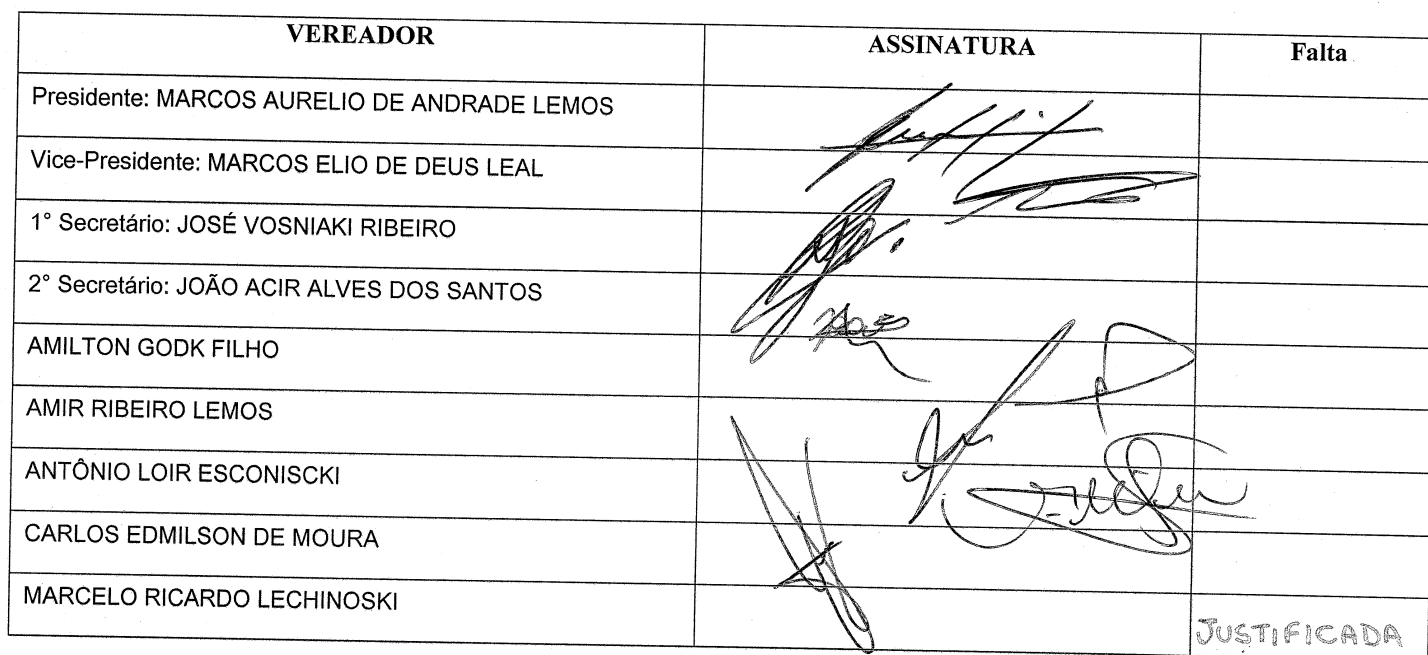 VEREADOR ASSINATURA Falta
Presidente: MARCOS AURELIO DE ANDRADE LEMOS
Vice-Presidente: MARCOS ELIO DE DEUS LEAL
1° Secretário: JOSÉ VOSNIAKI RIBEIRO
2° Secretário: JOÃO ACIR ALVES DOS SANTOS
AMILTON GODK FILHO
AMIR RIBEIRO LEMOS
ANTÔNIO LOIR ESCONISCKI
CARLOS EDMILSON DE MOURA
MARCELO RICARDO LECHINOSKI JUSTIFICADA